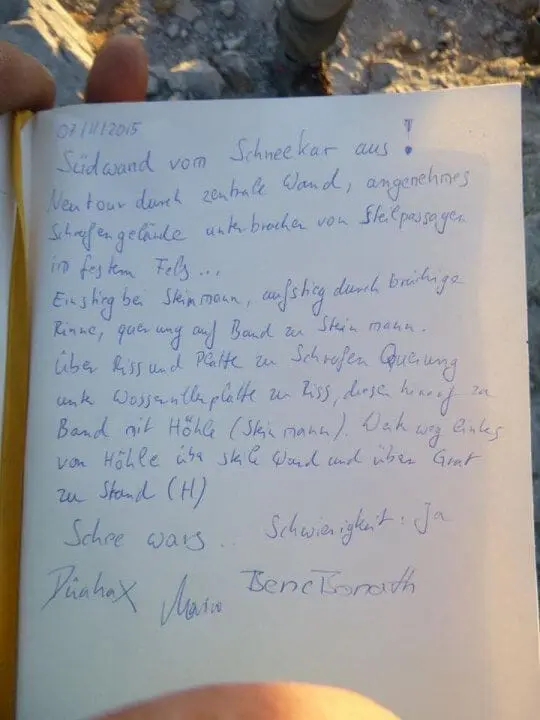 07/11/2015
Südwand vom Schneekar aus !
Neutour durch zentrale Wand, angenehmes
Schrofengelände unterbrochen von Steilpassagen
in festem Fels...
Einstieg bei Steinmann, aufstieg durch brüchige
Rinne, querung auf Band zu Steinmann.
Über Riss und Platte zu Schrofen Querung
unter Wasserrillenplatte zu Riss, diesen hinauf zu
Band mit Höhle (Steinmann). Weiterweg links
von Höhle über steile Wand und über Grat
zu Stand (H)
Schee wars .. Schwierigkeit: Ja
Mario